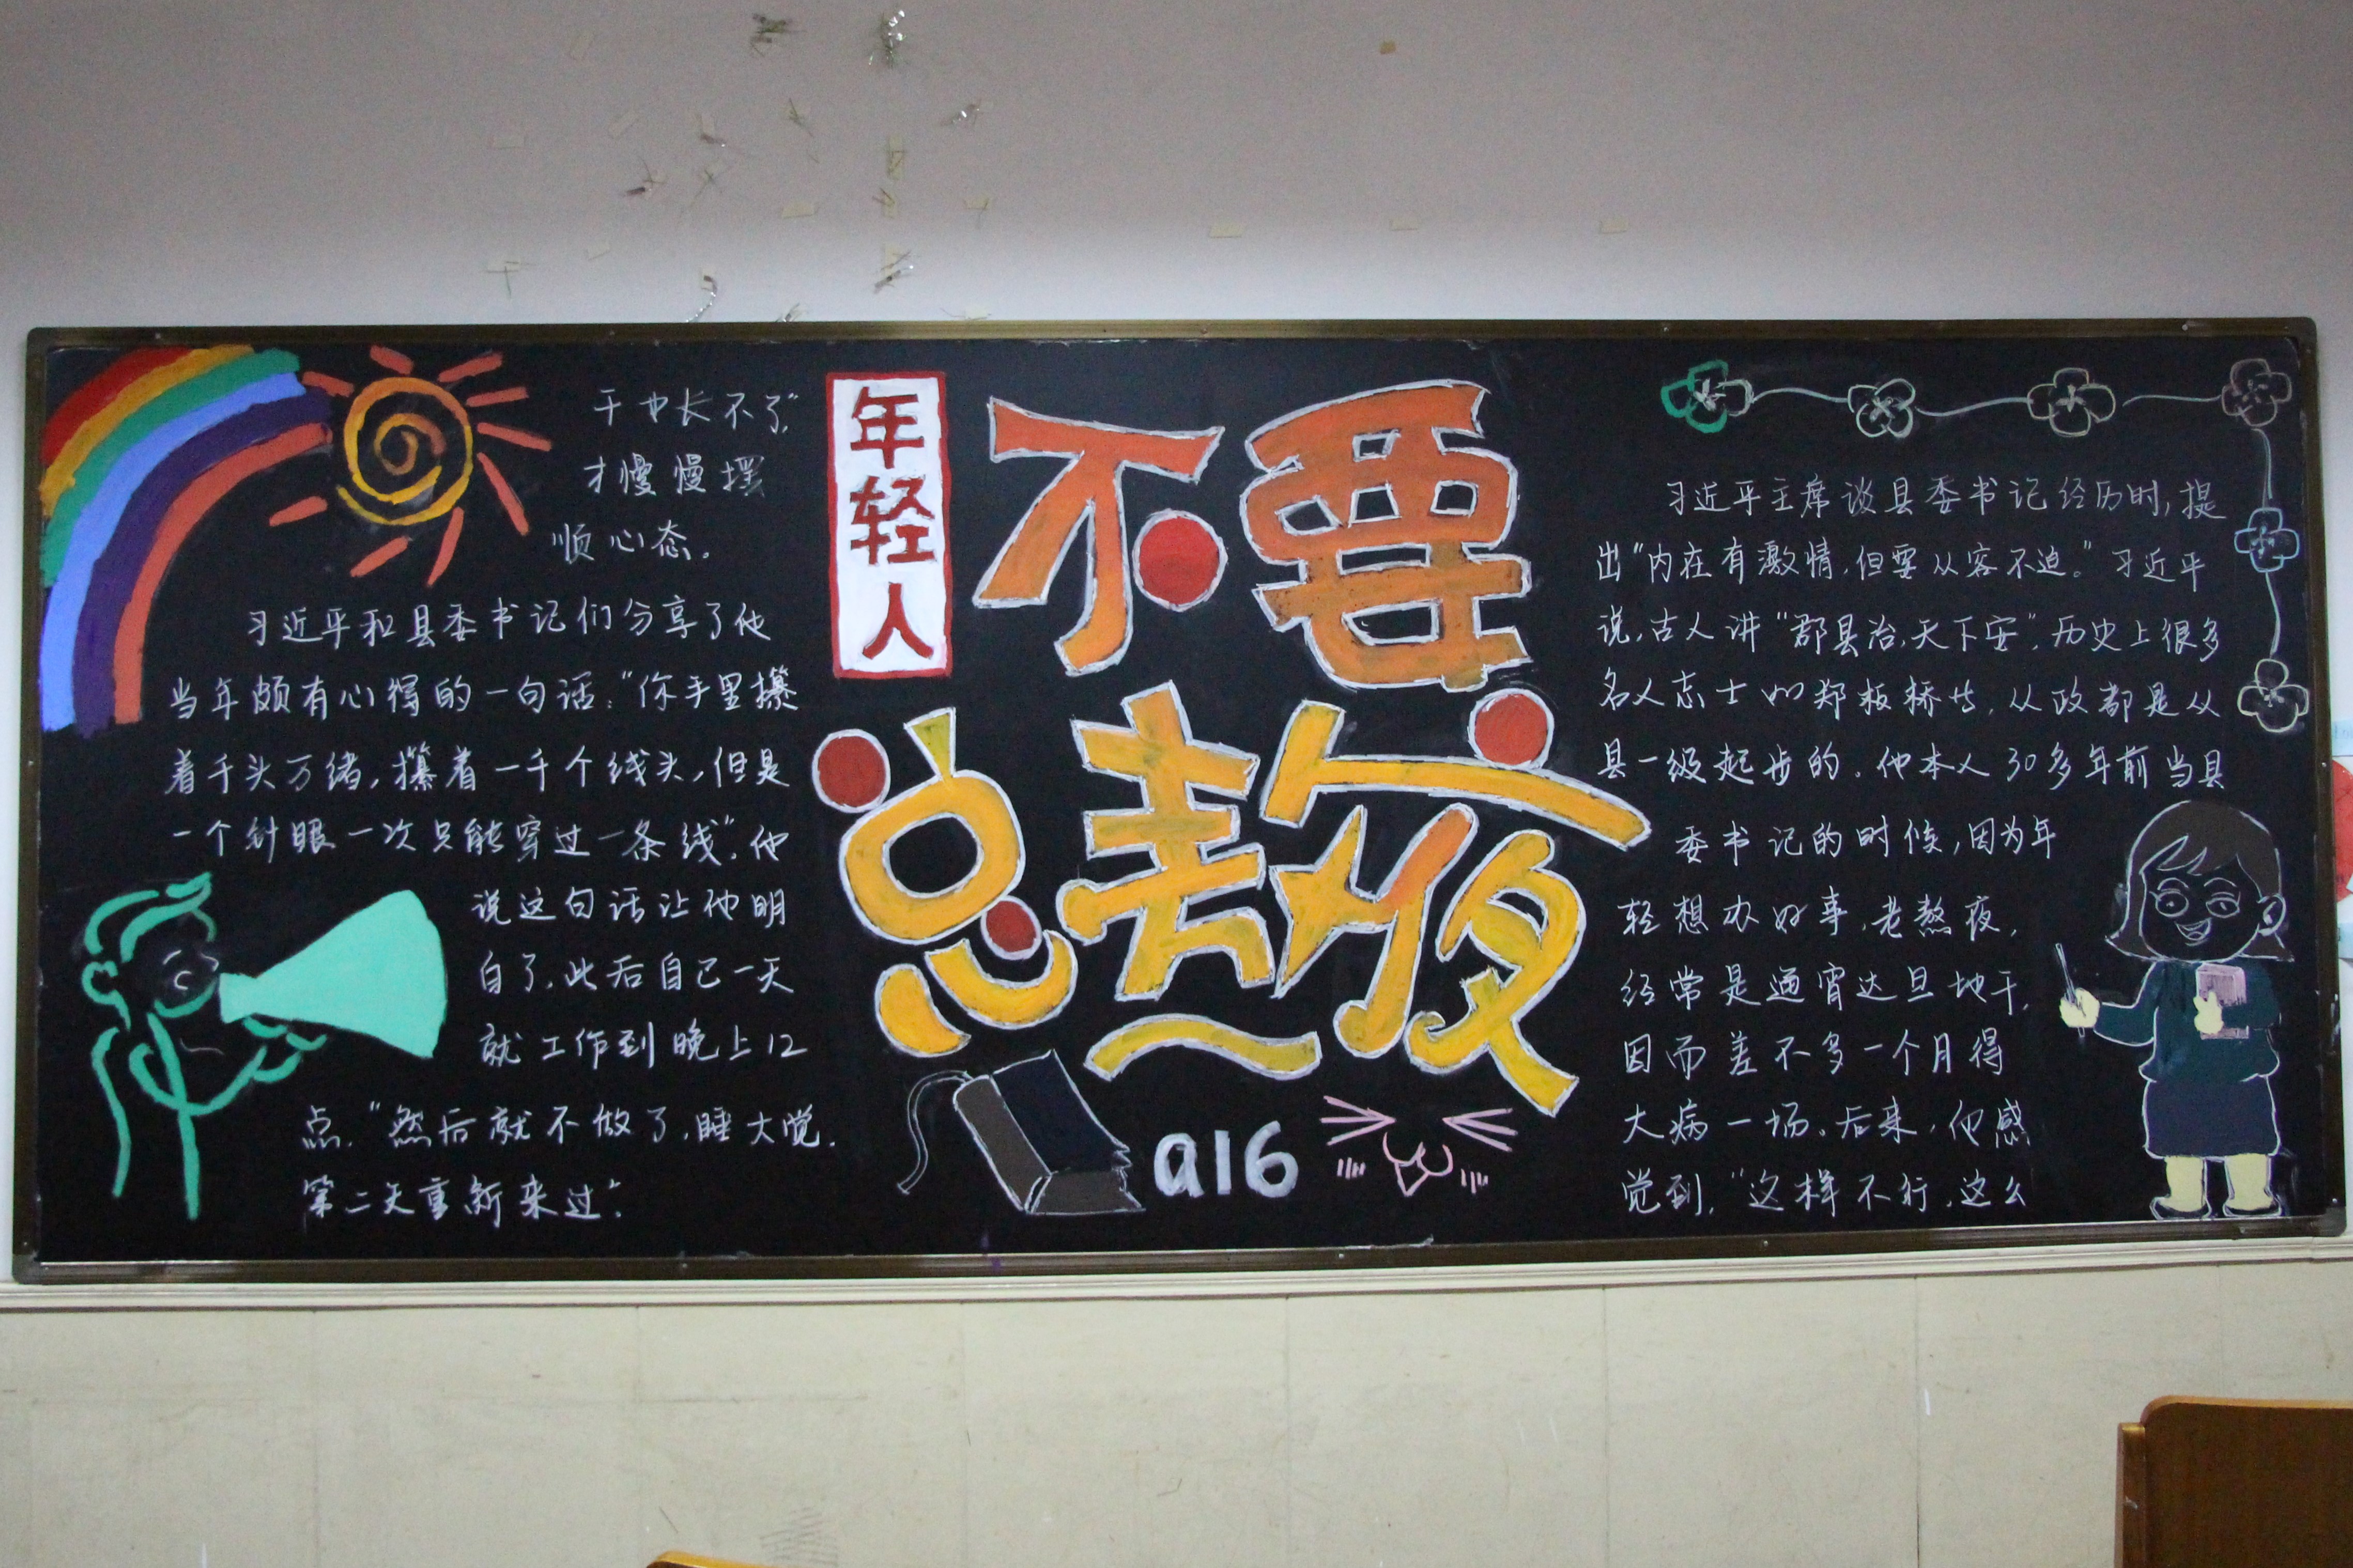 年轻人
不要
总熬夜
a16
习近平主席谈县委书记经历时,提
出“内在有激情,但要从容不迫。”习近平
说,古人讲“郡县治,天下安”,历史上很多
名人志士如郑板桥出,从政都是从
县一级起步的。他本人30多年前当县
委书记的时候,因为年
轻想办好事,老熬夜,
经常是通宵达旦地干,
因而差不多一个月得
大病一场。后来,他感
觉到,“这样不行,这么
干也长不了”
才慢慢摆
顺心态。
习近平和县委书记们分享了他
当年颇有心得的一句话:“你手里攥
着千头万绪,攥着一千个线头,但是
一个针眼一次只能穿过一条线”,他
说这句话让他明
白了,此后自己一天
就工作到晚上12
点,“然后就不做了,睡大觉,
第二天重新来过”.